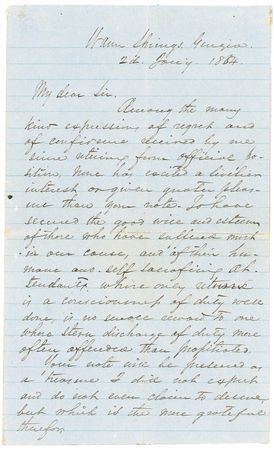 Warm Springs Georgia
2d Jany 1864.
My dear Sir.
Among the many
kind expressions of regret and
of confidence received by me
since retiring from official po-
sition, none has excited a livelier
interest or given greater pleas-
ure than your note. To have
secured the good will and esteem
of those who have suffered much
in our cause, and of their hu-
mane and self sacrificing at-
tendants, whose only return
is a consciousness of duty well
done, is no small reward to one
whose stern discharge of duty more
often offended than propitiated.
Your note will be preserved as
a treasure I did not expect
and do not even claim to deserve,
but which is the more grateful
therefor